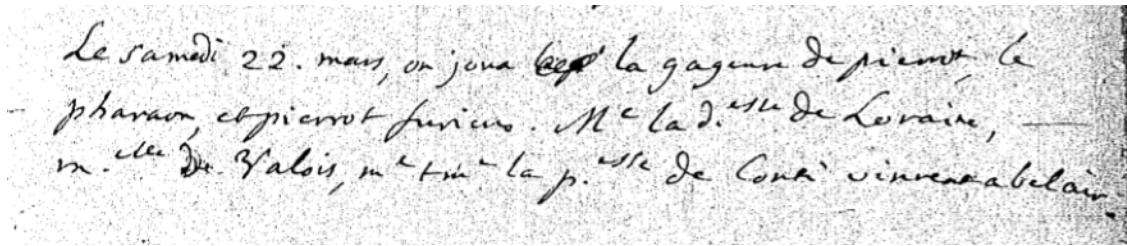 Le samedi 22. mars, on joua la gageure de pierrot, le
pharaon, et pierrot furieux. Me la d.esse de Loraine, —
m.elle De Valois, me la p.esse de Conti vinrent a belair.